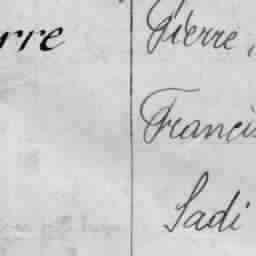 rre Pierre,
Francis
Sadi